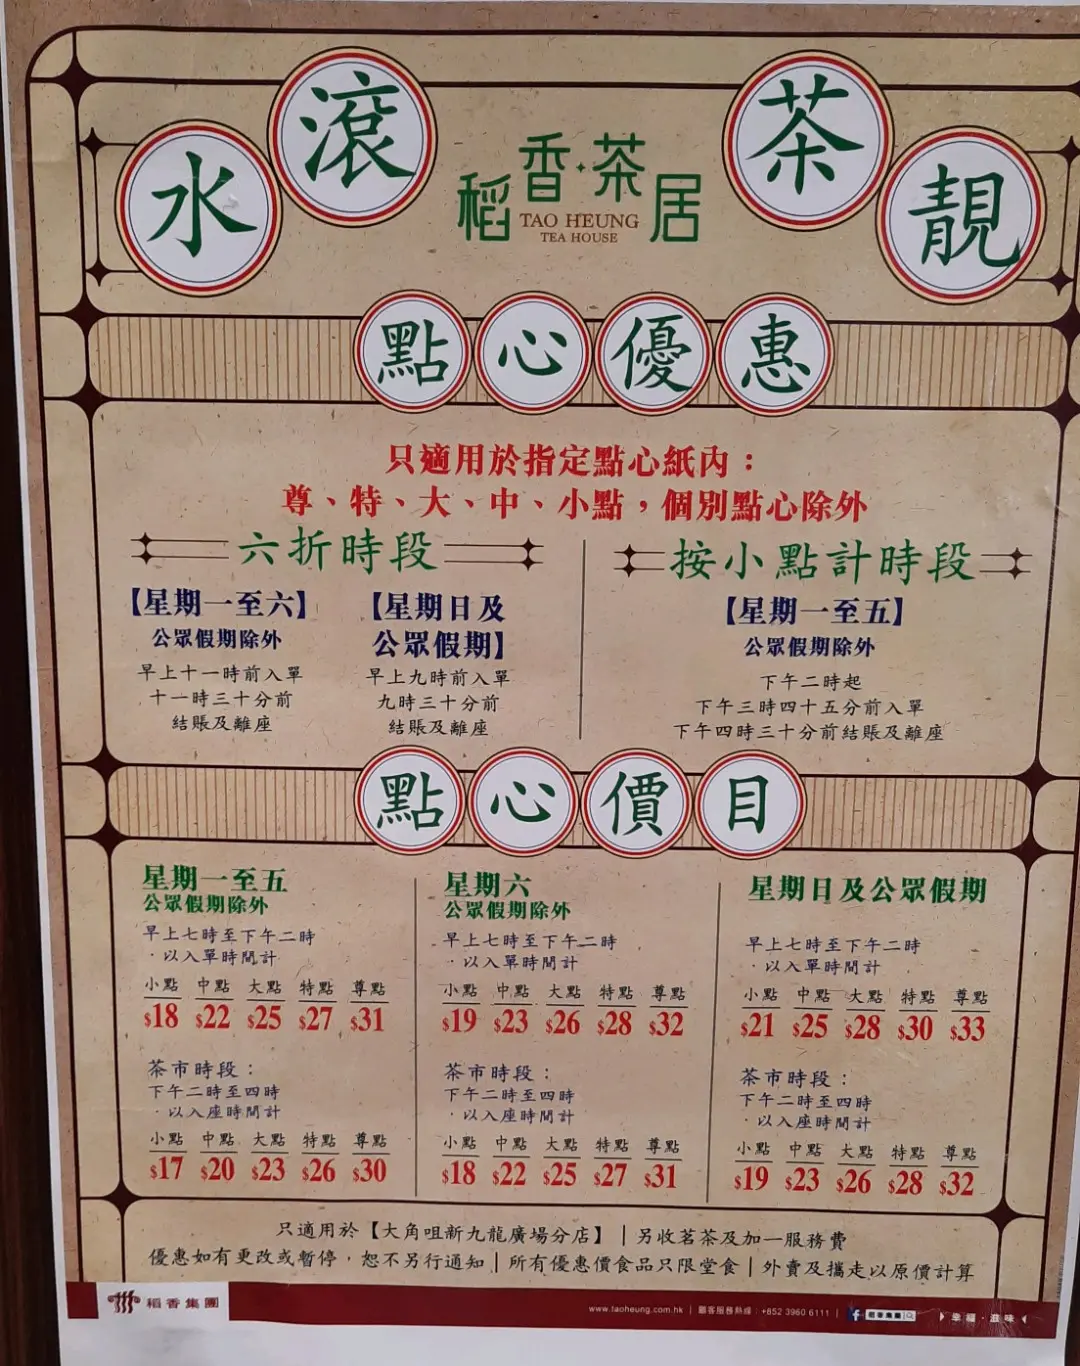 水滾茶靚
稻香·茶居
TAO HEUNG
TEA HOUSE
點心優惠
只適用於指定點心紙內：
尊、特、大、中、小點，個別點心除外
六折時段
【星期一至六】
公眾假期除外
早上十一時前入單
十一時三十分前
結賬及離座
【星期日及
公眾假期】
早上九時前入單
九時三十分前
結賬及離座
按小點計時段
【星期一至五】
公眾假期除外
下午二時起
下午三時四十五分前入單
下午四時三十分前結賬及離座
點心價目
星期一至五
公眾假期除外
早上七時至下午二時
·以入單時間計
小點 中點 大點 特點 尊點
$18 $22 $25 $27 $31
茶市時段：
下午二時至四時
·以入座時間計
小點 中點 大點 特點 尊點
$17 $20 $23 $26 $30
星期六
公眾假期除外
早上七時至下午二時
·以入單時間計
小點 中點 大點 特點 尊點
$19 $23 $26 $28 $32
茶市時段：
下午二時至四時
·以入座時間計
小點 中點 大點 特點 尊點
$18 $22 $25 $27 $31
星期日及公眾假期
早上七時至下午二時
·以入單時間計
小點 中點 大點 特點 尊點
$21 $25 $28 $30 $33
茶市時段：
下午二時至四時
·以入座時間計
小點 中點 大點 特點 尊點
$19 $23 $26 $28 $32
只適用於【大角咀新九龍廣場分店】｜另收茗茶及加一服務費
優惠如有更改或暫停，恕不另行通知｜所有優惠價食品只限堂食｜外賣及攜走以原價計算
稻香集團
www.taoheung.com.hk | 顧客服務熱線：+852 3960 6111 | f 稻香集團
幸福·滋味